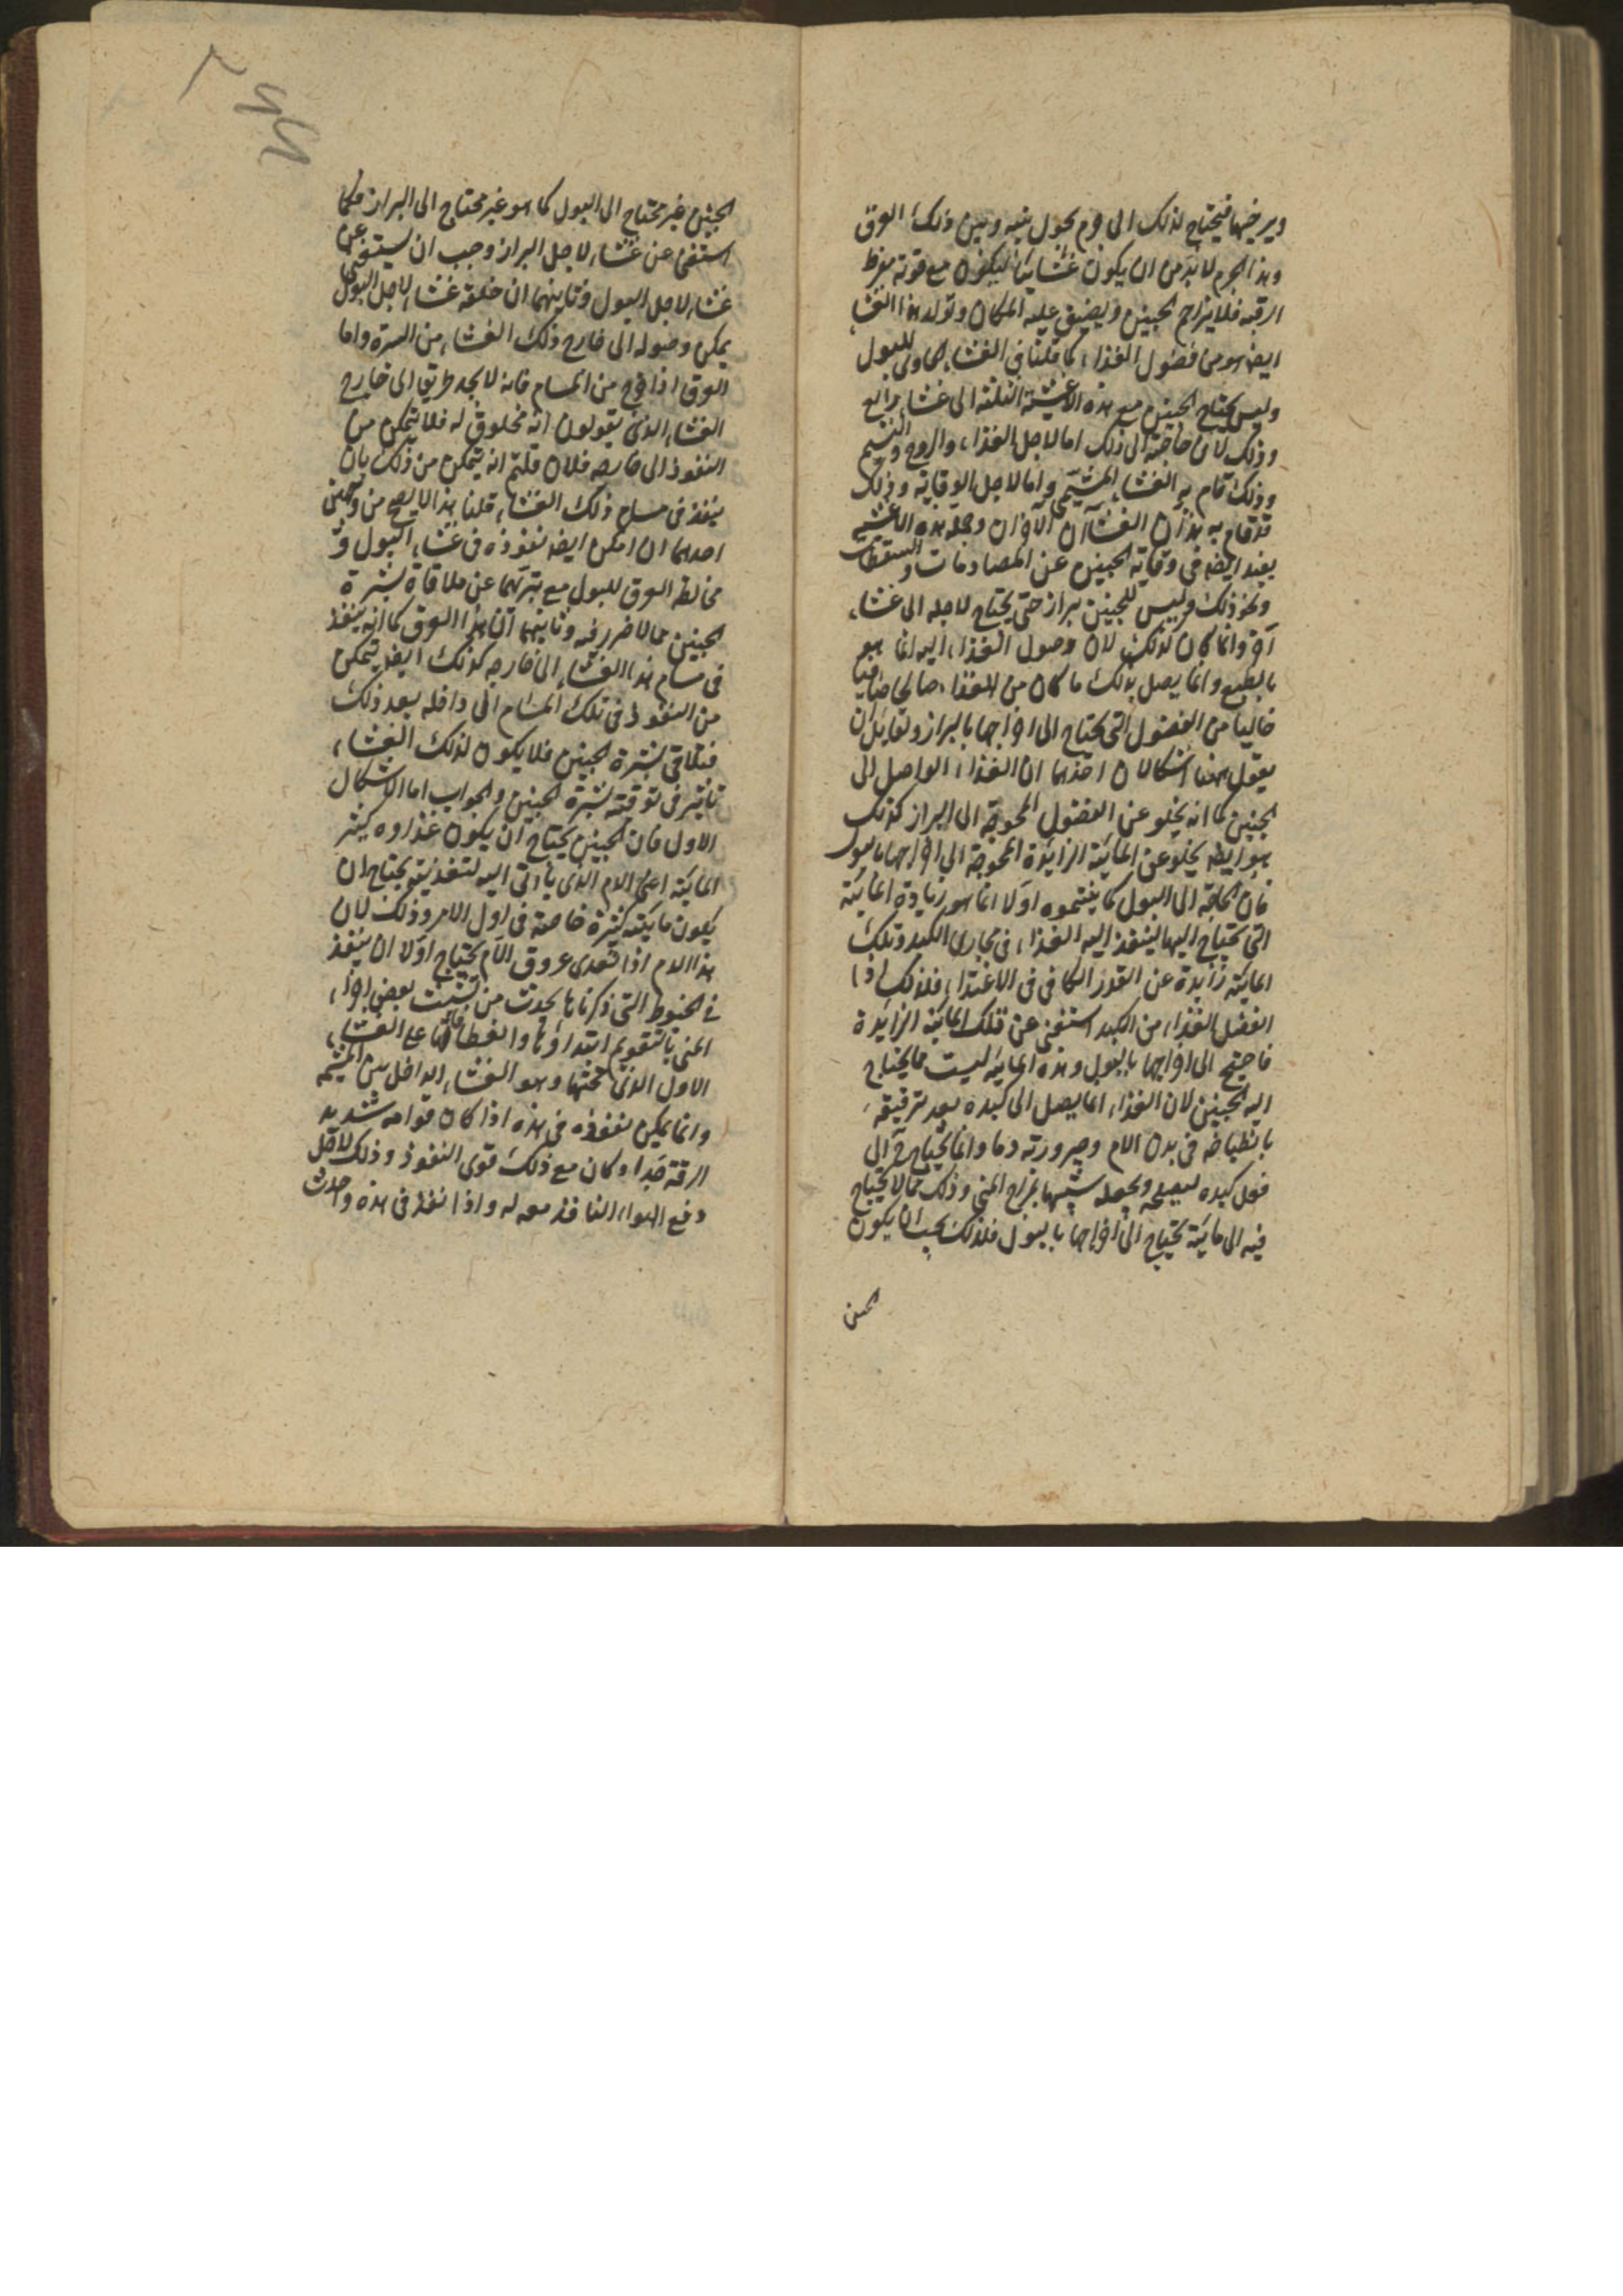 ويرخيها فيحتاج لذلك الى جرم يحول بينه وبين ذلك العرق
وهذا الجرم لا بد من ان يكون غشائيا ليكون مع قوته مفرط
الرقة فلا يزاحم الجنين ويضيق عليه المكان وتولد هذا الغشاء
ايضا هو من فضول الغذاء كما قلنا في الغشاء الحاوى للبول
وليس يحتاج الجنين مع هذه الاغشية الثلثة الى غشاء رابع
وذلك لان حاجته الى ذلك اما لاجل الغذاء والروح والنسيم
وذلك قام به الغشاء المشيمى واما لاجل الوقاية وذلك
قد قام به هذان الغشاآن الآخران وجملة هذه الاغشية
يفيد ايضا في وقاية الجنين عن المصادمات والسقطات
ونحو ذلك وليس للجنين براز حتى يحتاج لاجله الى غشاء
آخر وانما كان كذلك لان وصول الغذاء اليه انما هو
بالطبع وانما يصل بذلك ما كان من الغذاء صالحا صافيا
خاليا من الفضول التى يحتاج الى اخراجها بالبراز ولقايل ان
يقول ههنا اشكالان احدهما ان الغذاء الواصل الى
الجنين كما انه يخلو عن الفضول المحوجة الى البراز كذلك
هو ايضا يخلو عن المائية الزائدة المحوجة الى اخراجها بالبول
فان الحاجة الى البول كما بينتموه اولا انما هو زيادة المائية
التى يحتاج اليها لينفذ اليه الغذاء في مجارى الكبد وتلك
المائية زايدة عن القدر الكافى فى الاغتذاء فلذلك اذا
انفصل الغذاء من الكبد استغنى عن تلك المائية الزايدة
فاحتيج الى اخراجها بالبول وهذه المائية ليست مما يحتاج
اليه الجنين لان الغذاء انما يصل الى كبده بعد ترقيقه
بانطباخه فى بدن الام وصيرورته دما وانما يحتاج ح الى
فعل كبده ليصلحه ويجعله شبيها بمزاج المنى وذلك مما لا يحتاج
فيه الى مائية يحتاج الى اخراجها بالبول فلذلك يجب ان يكون
الجنين
الجنين غير محتاج الى البول كما هو غير محتاج الى البراز فكما
استغنى عن غشاء لاجل البراز وجب ان يستغنى عن
غشاء لاجل البول وثانيهما ان خلقة غشاء لاجل البول
يمكن وصوله الى خارج ذلك الغشاء من السرة واما
العرق اذا خرج من المسام فانه لا يجد طريقا الى خارج
الغشاء الذى يقولون انه مخلوق له فلا يتمكن من
النفوذ الى خارجه فلان قلتم انه يتمكن من ذلك بان
ينفذ فى مسام ذلك الغشاء قلنا هذا لا يصح من وجهين
احدهما ان امكن ايضا نفوذه فى غشاء البول و
مخالطة العرق للبول مع تبرئهما عن ملاقاة بشرة
الجنين مما لا ضرر فيه وثانيهما ان هذا العرق كما انه ينفذ
فى مسام هذا الغشاء الى خارجه كذلك ايضا يتمكن
من النفوذ فى تلك المسام الى داخله بعد ذلك
فيلاقى بشرة الجنين فلا يكون لذلك الغشاء
تاثير فى توقية بشرة الجنين والجواب اما الاشكال
الاول فان الجنين يحتاج ان يكون غذاوه كثير
المائية اعنى الدم الذى ياتى اليه لتغذيته يحتاج ان
يكون مائيته كثيرة خاصة فى اول الامر وذلك لان
هذا الدم اذا تعدى عروق الام يحتاج اولا ان ينفذ
في الخيوط التى ذكرناها يحدث من تشبث بعض اجزاء
المنى
الاول الذى تحتها وهو الغشاء الداخل من المشيمة
وانما يمكن نفوذه فى هذه اذا كان قوامه شديد
الرقة جدا وكان مع ذلك قوى النفوذ وذلك لاجل
دفع الهواء النافذ معه له واذا نفذ فى هذه وحدث